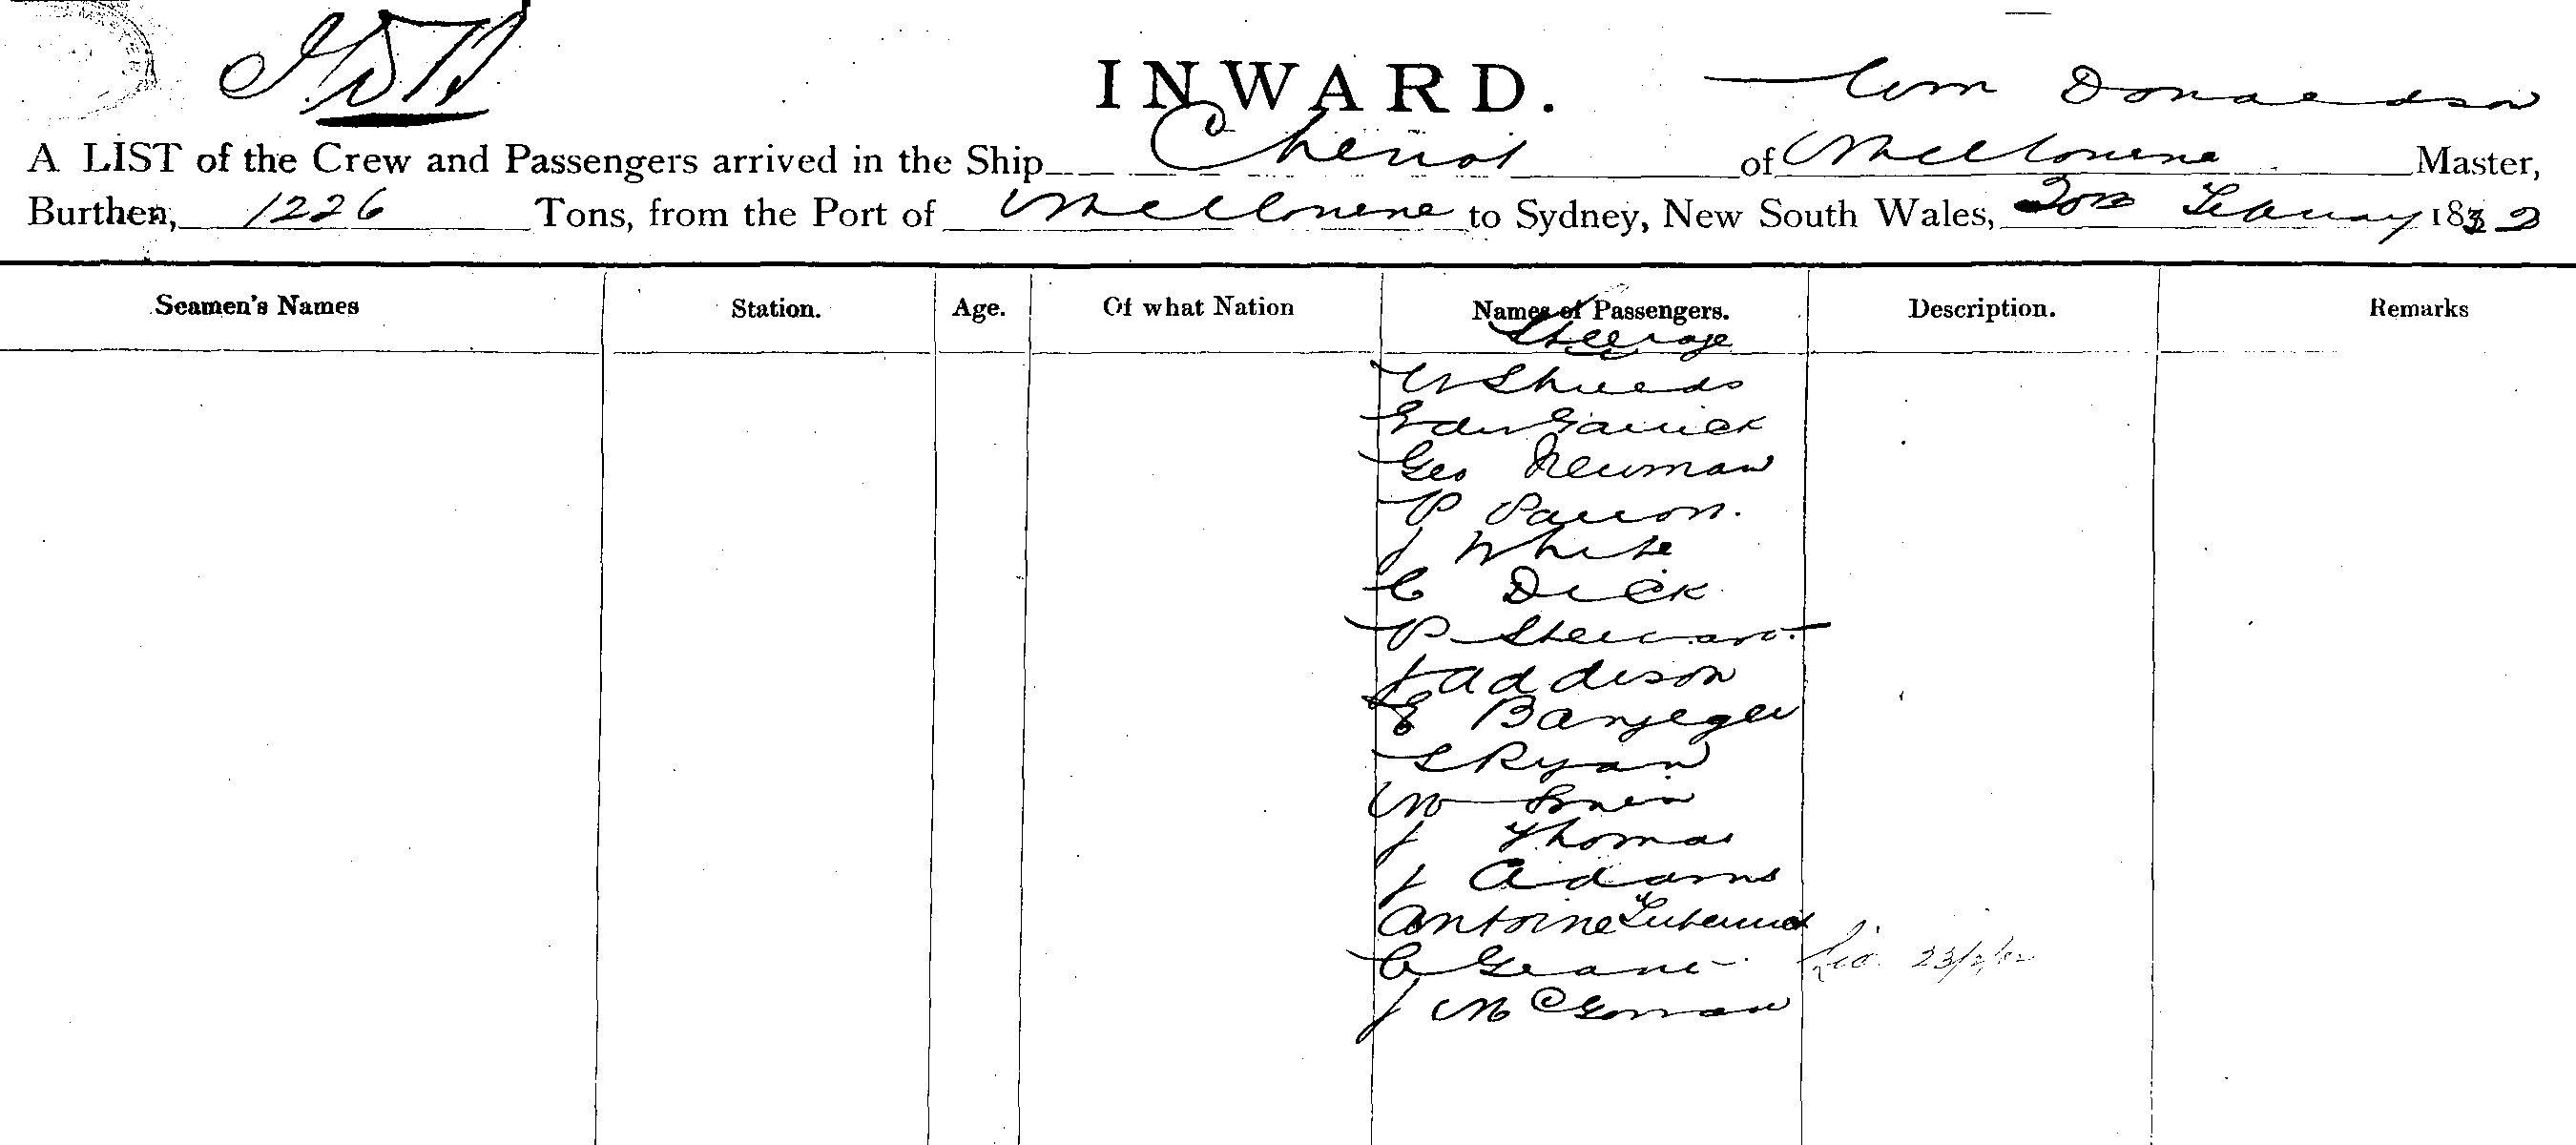 INWARD.
Wm Donaldson
A LIST of the Crew and Passengers arrived in the Ship Cheviot of Melbourne Master,
Burthen, 1226 Tons, from the Port of Melbourne to Sydney, New South Wales, February 18 2
Seamen's Names Station. Age. Of what Nation Names of Passengers. Description. Remarks
Steerage
W Shields
Edw Garrick
Geo Newman
P Parron.
J White
C Dick
P Stewart
J Addison
E
S Ryan
M
J Thomas
J Adams
Antoine
C Grant 23/2/82
J McGowan